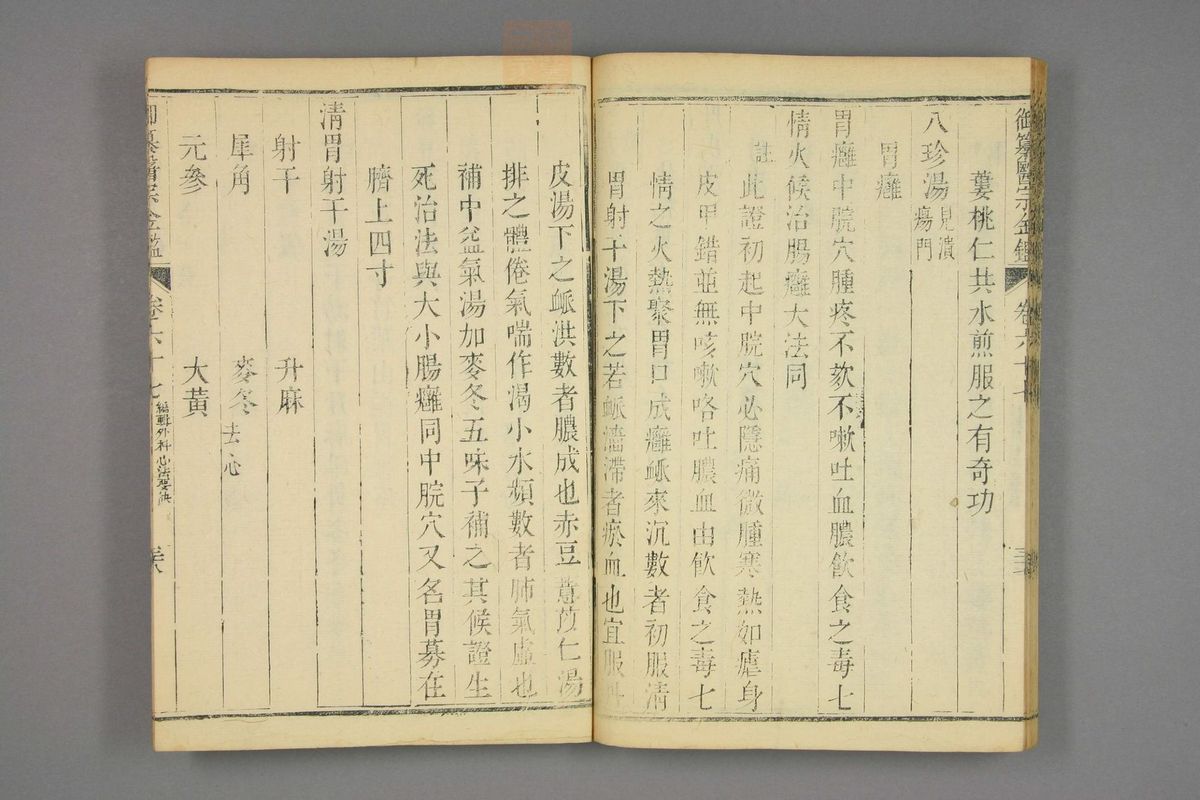 御纂醫宗金鑑 卷六十七
蔞桃仁共水煎服之有奇功
八珍湯見潰瘍門
胃癰
胃癰中脘穴腫疼不欬不嗽吐血膿飲食之毒七
情火候治腸癰大法同
註此證初起中脘穴必隱痛微腫寒熱如瘧身
皮甲錯並無咳嗽咯吐膿血由飲食之毒七
情之火熱聚胃口成癰脈來沉數者初服清
胃射干湯下之若脈濇滯者瘀血也宜服丹
皮湯下之脈洪數者膿成也赤豆薏苡仁湯
排之體倦氣喘作渴小水頻數者肺氣虛也
補中益氣湯加麥冬五味子補之其候證生
死治法與大小腸癰同中脘穴又名胃募在
臍上四寸
清胃射干湯
射干 升麻
犀角 麥冬去心
元參 大黃
御纂醫宗金鑑 卷六十七 編輯外科心法要訣 三十八